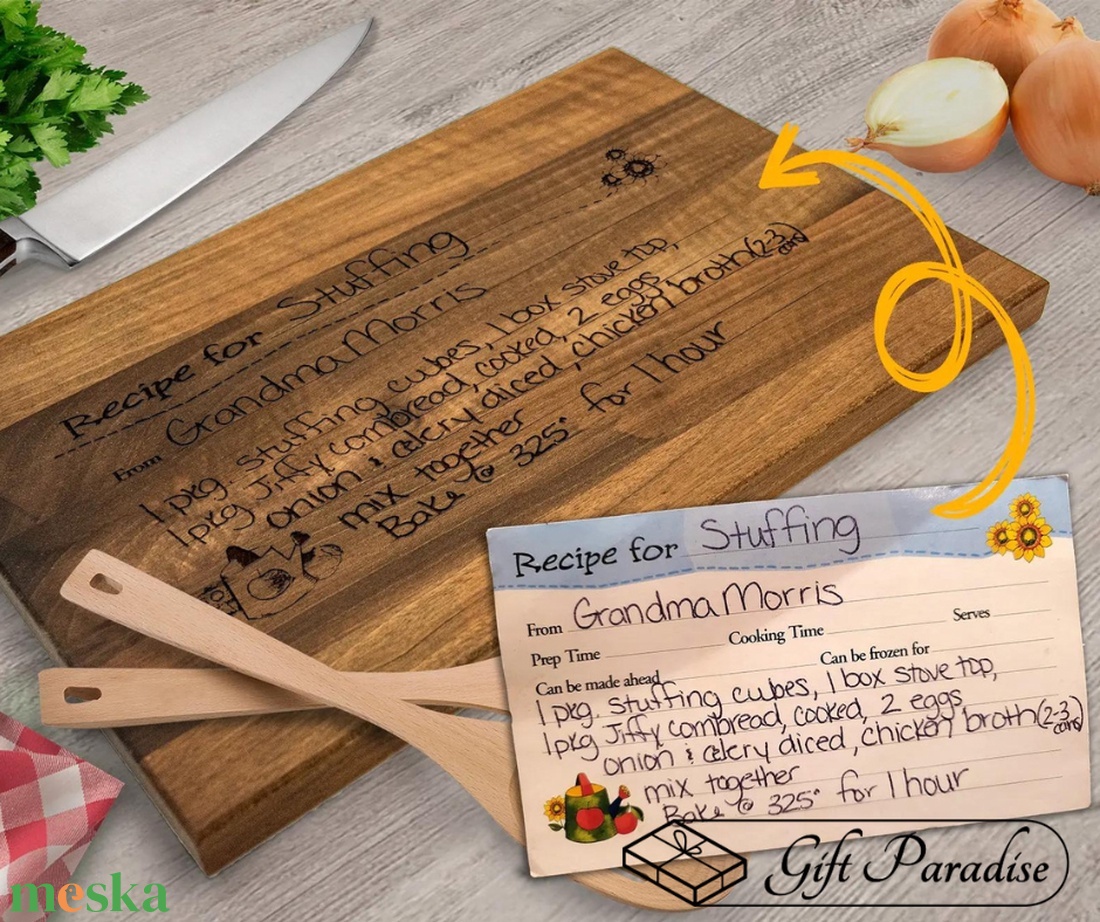 Recipe for Stuffing
From Grandma Morris
1 pkg. stuffing cubes, 1 box stove top,
1 pkg Jiffy cornbread, cooked, 2 eggs
onion & celery diced, chicken broth (2-3 cans)
mix together
Bake @ 325° for 1 hour
Recipe for Stuffing
From Grandma Morris
Prep Time Cooking Time Serves
Can be made ahead Can be frozen for
1 pkg. stuffing cubes, 1 box stove top,
1 pkg Jiffy cornbread, cooked, 2 eggs
onion & celery diced, chicken broth (2-3 cans)
mix together
Bake @ 325° for 1 hour
Gift Paradise
meska